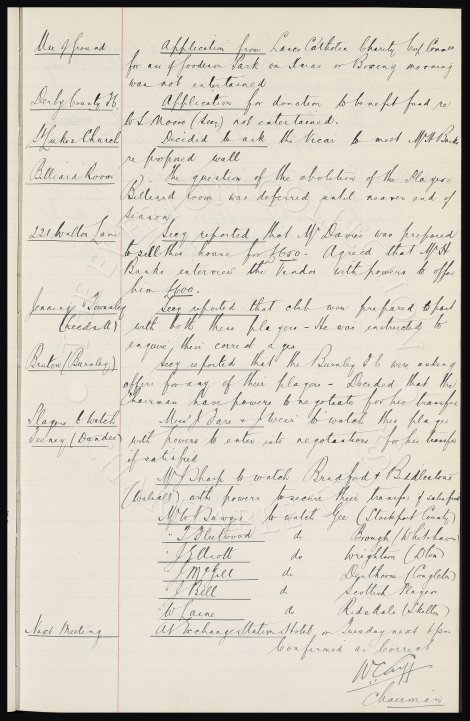 Use of Ground Application from Lancs Catholic Charity Cup Comm
for use of Goodison Park on Xmas or Boxing morning
was not entertained
Derby County F.C Application for donation to benefit fund re
W.S. Moore (Secy) not entertained.
St Lukes Church Decided to ask the Vicar to meet Mr H Banks
re proposed wall
Billiard Room The question of the abolition of the Players
Billiard room was deferred until nearer end of
season
221 Walton Lane Secy reported that Mr Davies was prepared
to sell this house for £650. Agreed that Mr H
Banks interview the Vendor with powers to offer
him £600.
Jennings & Townsley Secy reported that club were prepared to part
(Leeds U) with both these players - He was instructed to
enquire their correct ages
Bruton (Burnley) Secy reported that the Burnley F C were asking
offers for any of their players - Decided that the
Chairman have powers to negotiate for his transfer
Players to Watch Messrs Fare & J Weir to watch this player
(Dundee) with powers to enter into negotiations for his transfer
if satisfied
Mr J Sharp to watch Bradford & Biddlestone
(Walsall) with powers to secure their transfer if satisfied
Mr W J Sawyer to watch Gee (Stockport County)
" T Fleetwood do Brough (Whitehaven)
" J Elliott do Wrighton
" J McGill do (Congleton)
" J Bell do Scottish Player
" W Caine do Ridsdale
Next Meeting At Exchange Station Hotel, on Tuesday next 6pm
Confirmed as Correct
W C Cuff
Chairman